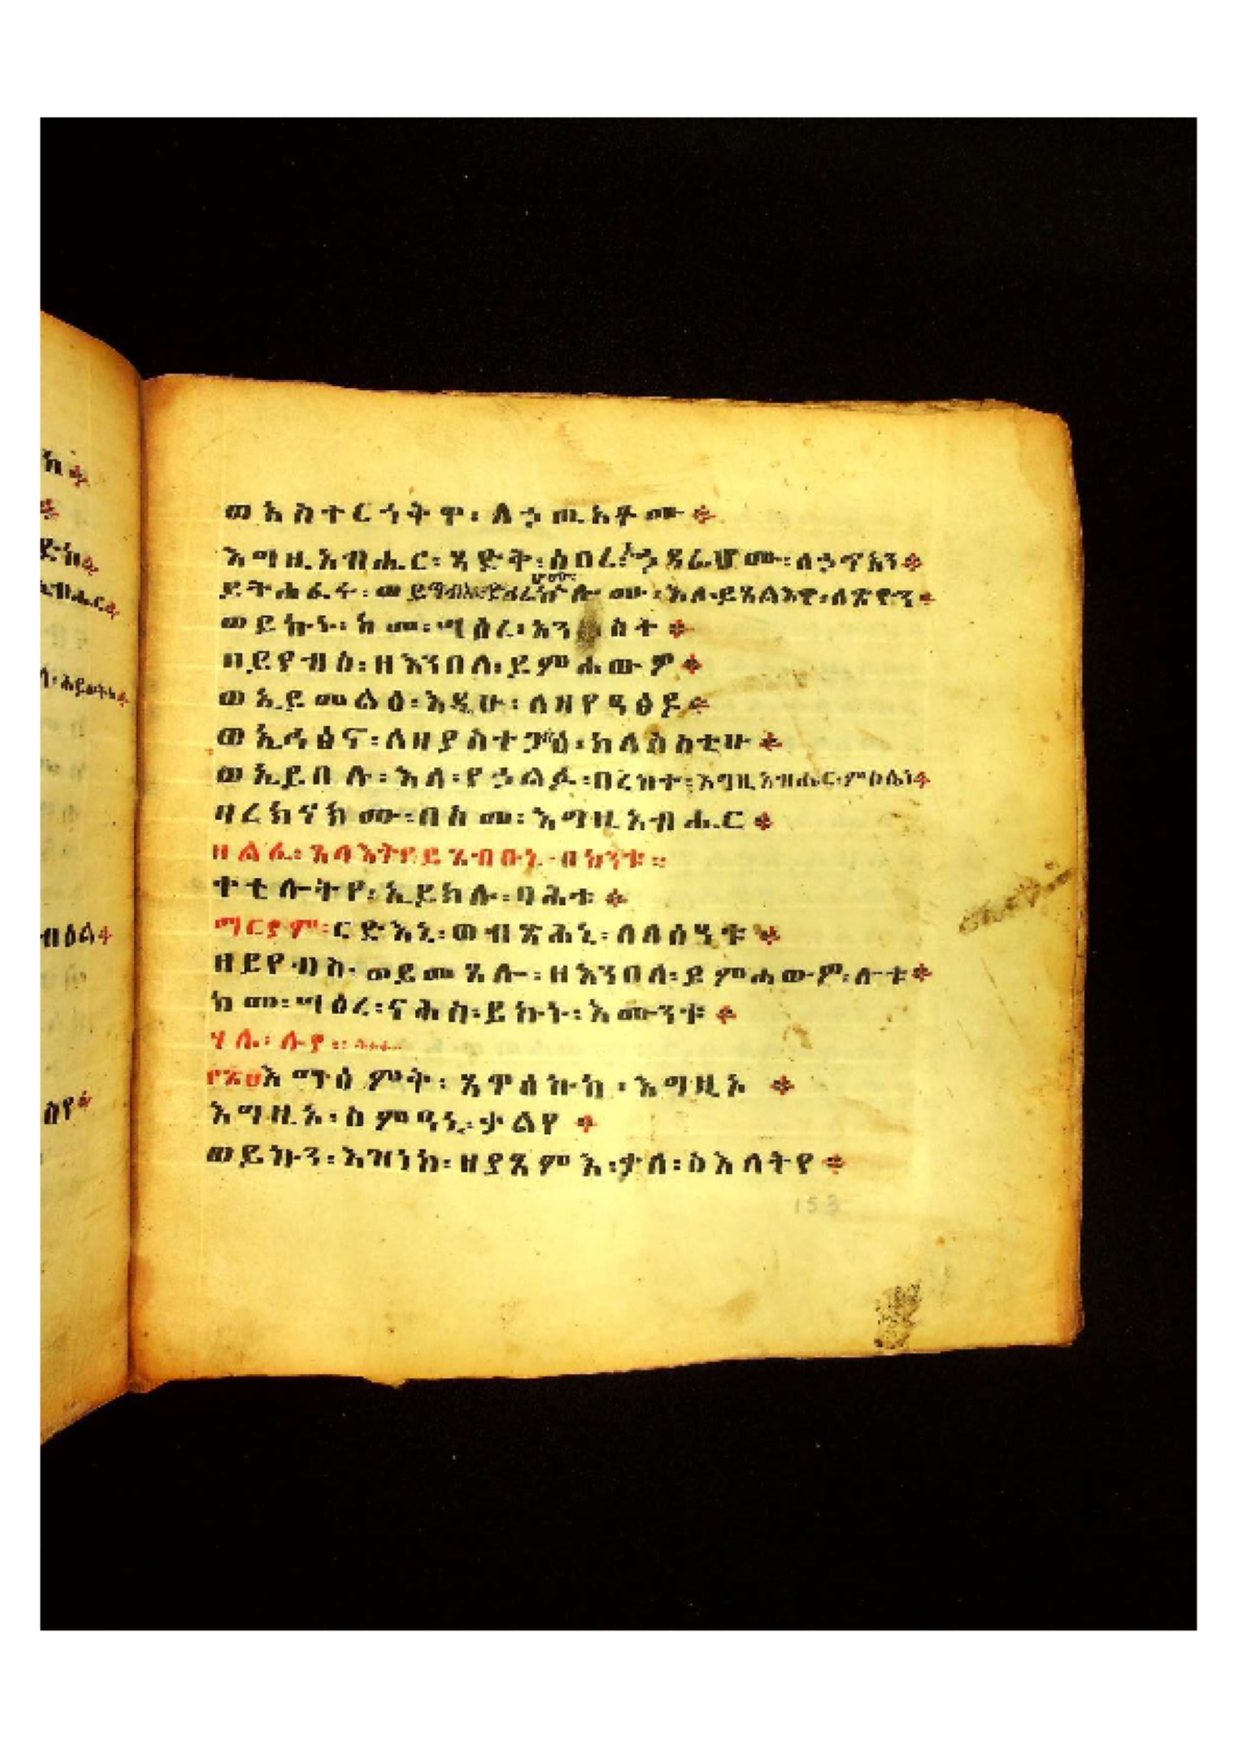 ወአስተርኅትዋ፡ ለኃጢአቶሙ።
እግዚአብሔር፡ ጻድቅ፡ ሰበረ፡ ኃይሎሙ፡ ለኃጥአን።
ይትሐፈሩ፡ ወይግብኡ፡ ድኅሬሆሙ፡ ኵሎሙ፡ እለ፡ ይጸልእዋ፡ ለጽዮን።
ወይኩኑ፡ ከመ፡ ሣዕረ፡ አንሕስት።
ዘይየብስ፡ ዘእንበለ፡ ይምሐውዎ።
ወኢይመልዕ፡ እዲሁ፡ ለዘየዓፅዶ።
ወኢሕፅኖ፡ ለዘያስተጋብዕ፡ ከላስስቲሁ።
ወኢይበሉ፡ እለ፡ የኃልፉ፡ በረከተ፡ እግዚአብሔር፡ ምስሌነ።
ባረክናክሙ፡ በስመ፡ እግዚአብሔር።
ዘልፈ፡ ጸላእትየ ይጸብዑኒ፡ በከንቱ።
ተቲሎትየ፡ ኢይክሉ፡ ባሕቱ።
ማርያም፡ ርድእኒ፡ ወብጽሕኒ፡ ለለሰዓቱ።
ዘይየብስ፡ ወይመጸሉ፡ ዘእንበለ፡ ይምሐውዎ፡ ሎቱ።
ከመ፡ ሣዕረ፡ ናሕስ፡ ይኩኑ፡ እሙንቱ።
ሃሌ፡ ሉያ።
እማዕምቅ፡ ጸዋዕኩከ፡ እግዚኦ።
እግዚኦ፡ ስምዓኒ፡ ቃልየ።
ወይኩን፡ እዝነከ፡ ዘያጸምእ፡ ቃለ፡ ስእለትየ።
153